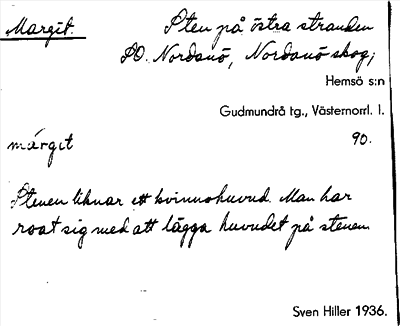 Margit. Sten på östra stranden
SO. Nordanö, Nordanö skog,
Hemsö s:n
Gudmundrå tg., Västernorrl. l.
márgit 90.
Stenen liknar ett kvinnohuvud. Man har
roat sig med att lägga huvudet på stenen.
Sven Hiller 1936.